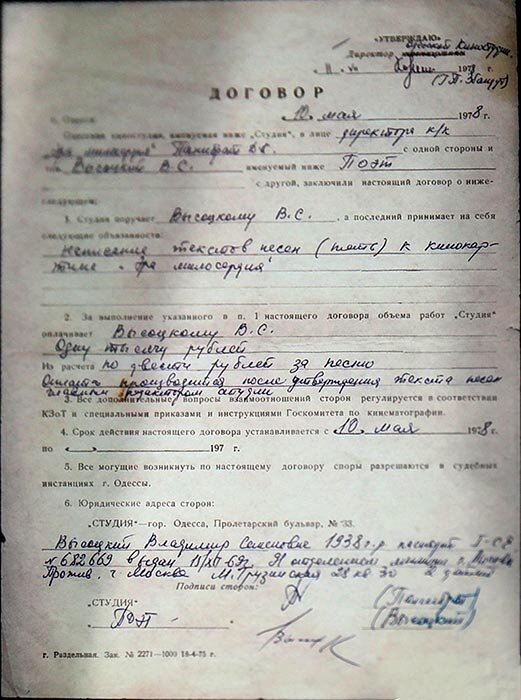 «УТВЕРЖДАЮ»
Директор Одесской Киностудии
1978 г.
(Г.П. Збандут)
ДОГОВОР
10 мая 1978 г.
г. Одесса
Одесская киностудия, именуемая ниже „Студия", в лице директора к/к
„Эра милосердия" Панибрат с одной стороны и
Высоцкий В.С. именуемый ниже Поэт
с другой, заключили настоящий договор о ниже-
следующем:
1. Студия поручает Высоцкому В.С., а последний принимает на себя
следующие обязанности:
Написание текстов песен (пять) к кинокар-
тине „Эра милосердия"
2. За выполнение указанного в п. 1 настоящего договора объема работ „Студия"
оплачивает Высоцкому В.С.
Одну тысячу рублей
Из расчета по двести рублей за песню
Оплата производится после утверждения текста песен
главным редактором студии
3. Все дополнительные вопросы взаимоотношений сторон регулируется в соответствии
КЗоТ и специальными приказами и инструкциями Госкомитета по кинематографии.
4. Срок действия настоящего договора устанавливается с 10 мая 1978 г.
по «___» 197 г.
5. Все могущие возникнуть по настоящему договору споры разрешаются в судебных
инстанциях г. Одессы.
6. Юридические адреса сторон:
„СТУДИЯ"—гор. Одесса, Пролетарский бульвар, № 33.
Высоцкий Владимир Семенович 1938 г.р. паспорт
№ 682669 выдан отделением милиции г. Москвы
Прожив. г. Москва М. Грузинская 28 кв 30 2 детей
Подписи сторон:
„СТУДИЯ" (Панибрат)
(Высоцкий)
г. Раздельная. Зак. № 2271—1000 18-4-75 г.